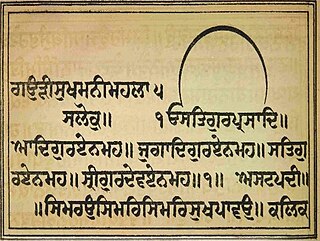 ਗਉੜੀਸੁਖਮਨੀਮਹਲਾ ੫
ਸਲੋਕੁ॥ ੴਸਤਿਗੁਰਪ੍ਰਸਾਦਿ॥
ਆਦਿਗੁਰਏਨਮਹ॥ ਜੁਗਾਦਿਗੁਰਏਨਮਹ॥ ਸਤਿਗੁ
ਰਏਨਮਹ॥ ਸ੍ਰੀਗੁਰਦੇਵਏਨਮਹ॥੧॥ ਅਸਟਪਦੀ॥
॥ਸਿਮਰਉਸਿਮਰਿਸਿਮਰਿਸੁਖਪਾਵਉ॥ ਕਲਿਕ